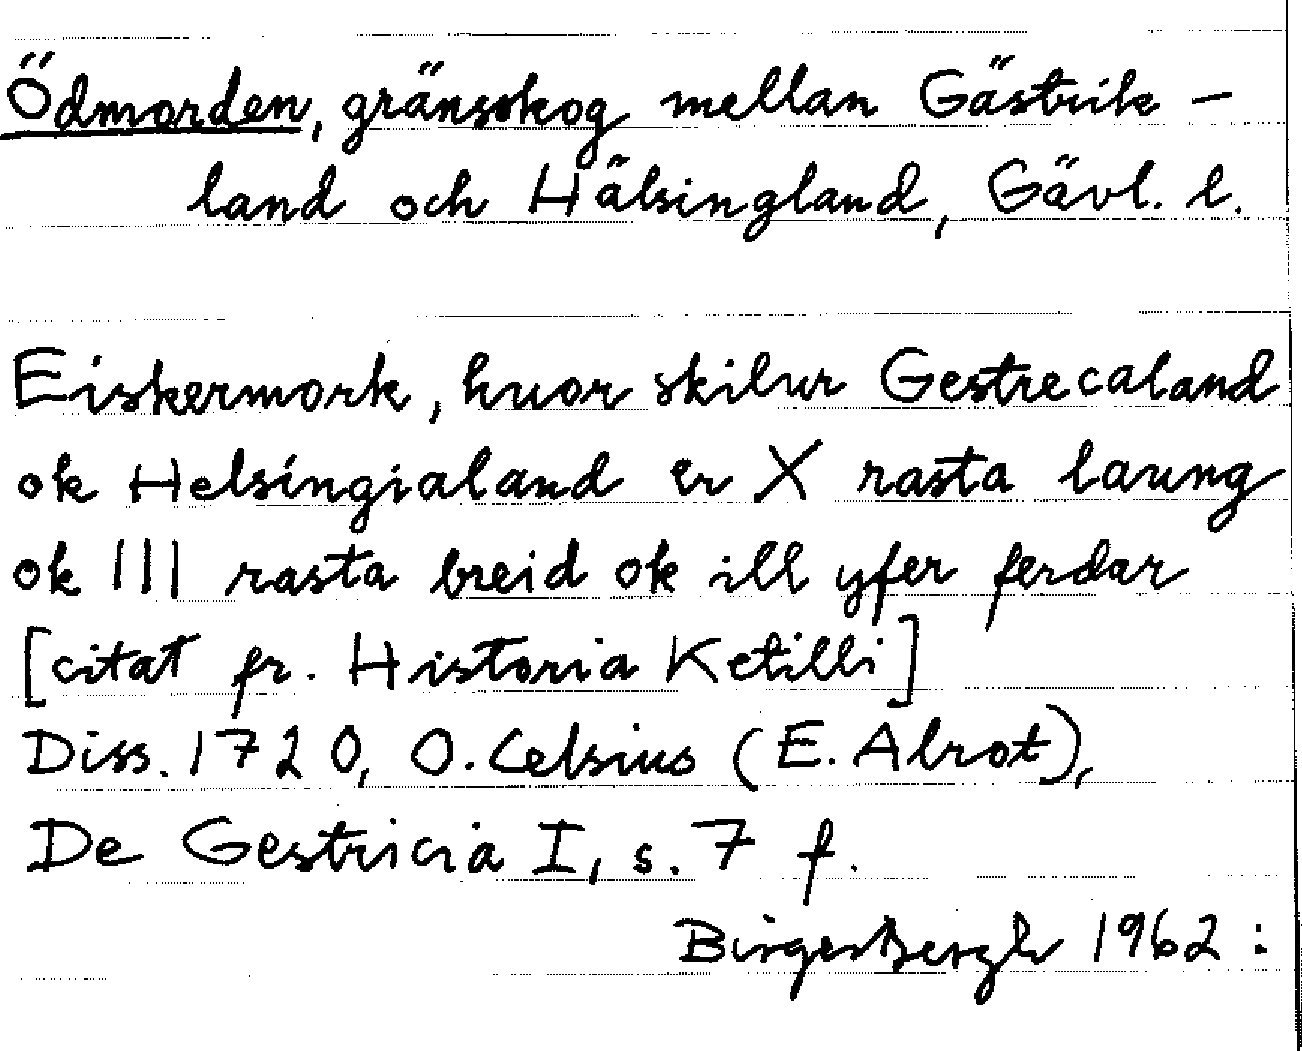 Ödmorden, gränsskog mellan Gästrik-
land och Hälsingland, Gävl. l.
Eiskermork, huor skilur Gestrecaland
ok Helsingialand er X rasta laung
ok III rasta breid ok ill yfer ferdar
[citat fr. Historia Ketilli]
Diss. 1720, O. Celsius (E. Alrot),
De Gestricia I, s. 7 f.
Birger Bergh 1962: